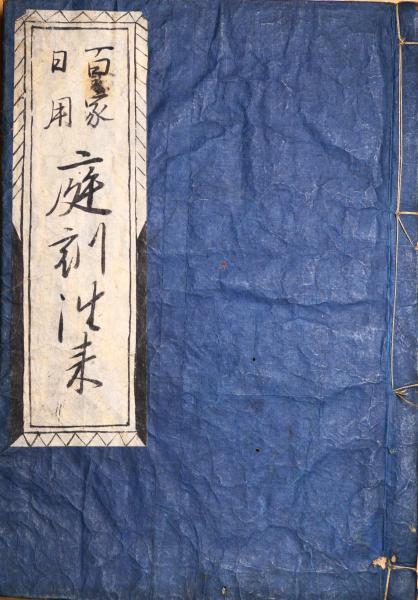 百家
日用
庭訓往来